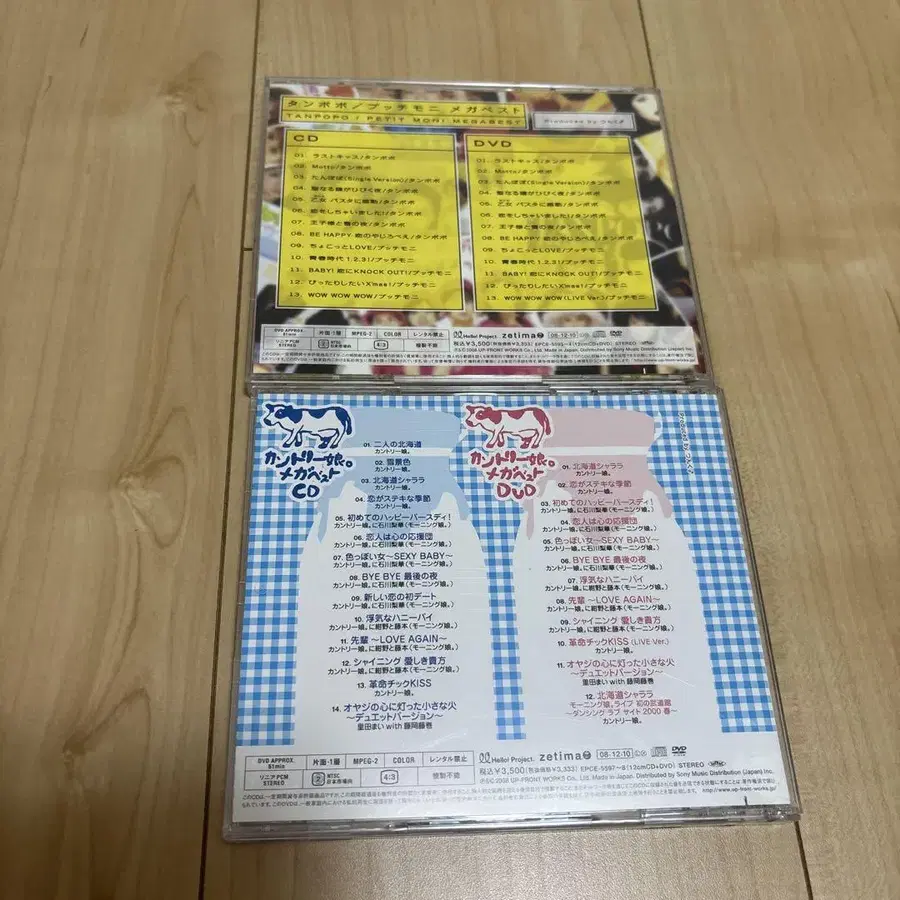 タンポポ/プッチモニ メガベスト
TANPOPO / PETIT MONI MEGABEST
Produced by つんく♂
CD
01. ラストキッス/タンポポ
02. Motto/タンポポ
03. たんぽぽ(Single Version)/タンポポ
04. 聖なる鐘がひびく夜/タンポポ
05. 乙女 パスタに感動/タンポポ
06. 恋をしちゃいました!/タンポポ
07. 王子様と雪の夜/タンポポ
08. BE HAPPY 恋のやじろべえ/タンポポ
09. ちょこっとLOVE/プッチモニ
10. 青春時代 1.2.3!/プッチモニ
11. BABY! 恋にKNOCK OUT!/プッチモニ
12. ぴったりしたいX'mas!/プッチモニ
13. WOW WOW WOW/プッチモニ
DVD
01. ラストキッス/タンポポ
02. Motto/タンポポ
03. たんぽぽ(Single Version)/タンポポ
04. 聖なる鐘がひびく夜/タンポポ
05. 乙女 パスタに感動/タンポポ
06. 恋をしちゃいました!/タンポポ
07. 王子様と雪の夜/タンポポ
08. BE HAPPY 恋のやじろべえ/タンポポ
09. ちょこっとLOVE/プッチモニ
10. 青春時代 1.2.3!/プッチモニ
11. BABY! 恋にKNOCK OUT!/プッチモニ
12. ぴったりしたいX'mas!/プッチモニ
13. WOW WOW WOW(LIVE Ver.)/プッチモニ
DVD APPROX. 51min 片面・1層 MPEG-2 COLOR レンタル禁止
リニアPCM STEREO 2 NTSC 日本市場向 4:3 複製不能
Hello! Project. zetima 08・12・10
税込¥3,500(税抜価格¥3,333)
カントリー娘。
メガベスト
CD
01. 二人の北海道
カントリー娘。
02. 雪景色
カントリー娘。
03. 北海道シャララ
カントリー娘。
04. 恋がステキな季節
カントリー娘。
05. 初めてのハッピーバースディ!
カントリー娘。に石川梨華(モーニング娘。)
06. 恋人は心の応援団
カントリー娘。に石川梨華(モーニング娘。)
07. 色っぽい女~SEXY BABY~
カントリー娘。に石川梨華(モーニング娘。)
08. BYE BYE 最後の夜
カントリー娘。に石川梨華(モーニング娘。)
09. 新しい恋の初デート
カントリー娘。に石川梨華(モーニング娘。)
10. 浮気なハニーパイ
カントリー娘。に紺野と藤本(モーニング娘。)
11. 先輩 ~LOVE AGAIN~
カントリー娘。に紺野と藤本(モーニング娘。)
12. シャイニング 愛しき貴方
カントリー娘。に紺野と藤本(モーニング娘。)
13. 革命チックKISS
カントリー娘。
14. オヤジの心に灯った小さな火
~デュエットバージョン~
里田まい with 藤岡藤巻
カントリー娘。
メガベスト
DVD
Produced by つんく♂
01. 北海道シャララ
カントリー娘。
02. 恋がステキな季節
カントリー娘。
03. 初めてのハッピーバースディ!
カントリー娘。に石川梨華(モーニング娘。)
04. 恋人は心の応援団
カントリー娘。に石川梨華(モーニング娘。)
05. 色っぽい女~SEXY BABY~
カントリー娘。に石川梨華(モーニング娘。)
06. BYE BYE 最後の夜
カントリー娘。に石川梨華(モーニング娘。)
07. 浮気なハニーパイ
カントリー娘。に紺野と藤本(モーニング娘。)
08. 先輩 ~LOVE AGAIN~
カントリー娘。に紺野と藤本(モーニング娘。)
09. シャイニング 愛しき貴方
カントリー娘。に紺野と藤本(モーニング娘。)
10. 革命チックKISS (LIVE Ver.)
カントリー娘。
11. オヤジの心に灯った小さな火
~デュエットバージョン~
里田まい with 藤岡藤巻
12. 北海道シャララ
モーニング娘。ライブ 初の武道館
~ダンシング ラブ サイト 2000 春~
カントリー娘。
DVD APPROX. 51min 片面・1層 MPEG-2 COLOR レンタル禁止
リニアPCM STEREO 2 NTSC 日本市場向 4:3 複製不能
Hello! Project. zetima 08・12・10
税込¥3,500(税抜価格¥3,333) EPCE-5597~8(12cmCD+DVD) STEREO
℗©2008 UP-FRONT WORKS Co., Ltd. Made in Japan. Distributed by Sony Music Distribution (Japan) Inc.
http://www.up-front-works.jp/